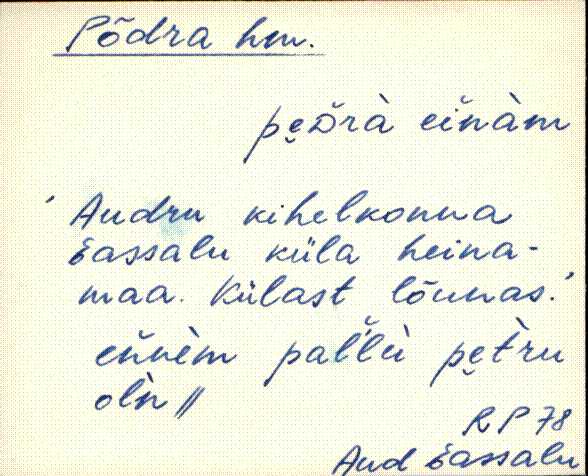 Põdra hm.
pe̮ᴅ̆rà eĭnàm
' Audru kihelkonna
Eassalu küla heina-
maa. Külast lõunas.'
eňnèm pal̆l̆ù pe̮t̀ru
olǹ //
RP 78
Aud Eassalu